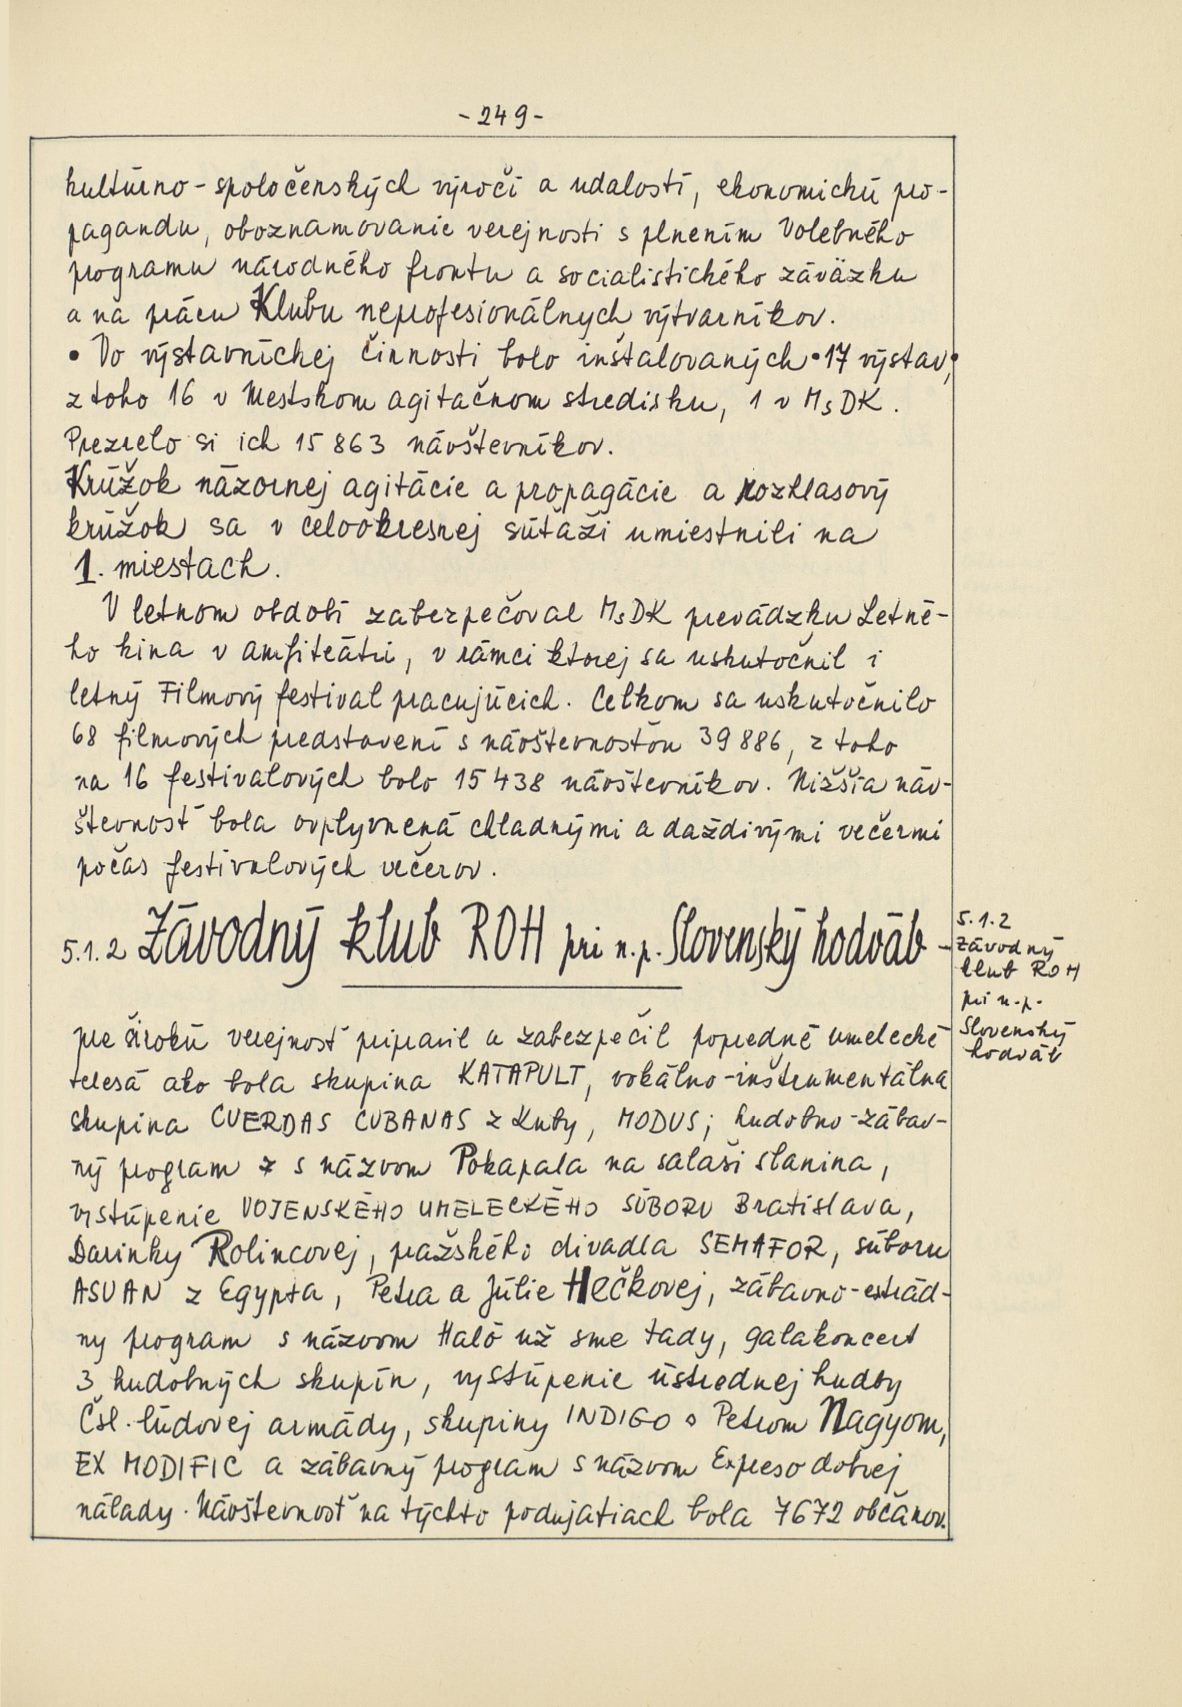 - 249 -
kultúrno - spoločenských výročí a udalostí, ekonomickú pro-
pagandu, oboznamovanie verejnosti s plnením Volebného
programu národného frontu a socialistického záväzku
a na prácu Klubu neprofesionálnych výtvarníkov.
• Vo výstavníckej činnosti bolo inštalovaných • 17 výstav, •
z toho 16 v Mestskom agitačnom stredisku, 1 v MsDK.
Prezrelo si ich 15 863 návštevníkov.
Krúžok názornej agitácie a propagácie a rozhlasový
krúžok sa v celookresnej súťaži umiestnili na
1. miestach.
V letnom období zabezpečoval MsDK prevádzku Letné-
ho kina v amfiteátri, v rámci ktorej sa uskutočnil i
letný Filmový festival pracujúcich. Celkom sa uskutočnilo
68 filmových predstavení s návštevnosťou 39 886, z toho
na 16 festivalových bolo 15 438 návštevníkov. Nižšia náv-
števnosť bola ovplyvnená chladnými a daždivými večermi
počas festivalových večerov.
5.1.2 Závodný klub ROH pri n.p. Slovenský hodváb -
5.1.2
Závodný
klub ROH
pri n.p.
Slovenský
hodváb
pre širokú verejnosť pripravil a zabezpečil popredné umelecké
telesá ako bola skupina KATAPULT, vokálno-inštrumentálna
skupina CUERDAS CUBANAS z Kuby, MODUS; hudobno-zábav-
ný program z s názvom Pokapala na salaši slanina,
vystúpenie VOJENSKÉHO UMELECKÉHO SÚBORU Bratislava,
Darinky Rolincovej, pražského divadla SEMAFOR, súboru
ASUAN z Egypta, Petra a Júlie Hečkovej, zábavno-estrád-
ny program s názvom Haló už sme tady, galakoncert
3 hudobných skupín, vystúpenie ústrednej hudby
Čsl. ľudovej armády, skupiny INDIGO s Petrom Nagyom,
EX MODIFIC a zábavný program s názvom Expreso dobrej
nálady. Návštevnosť na týchto podujatiach bola 7672 občanov.